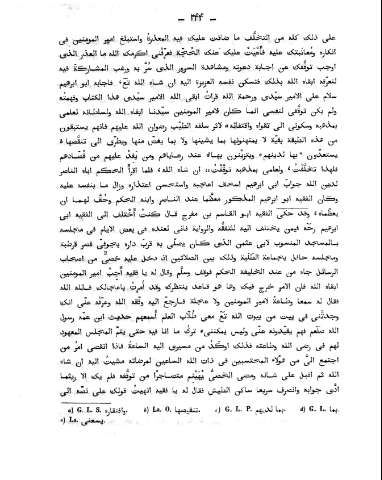 — ٢٤٤ —
على ذلك كله من التخلّف ما ضاقت عليك فيه المعذرة واستبلغ امير المومنين فى
انكاره ومعاتبتك عليه فأعْيَت عليك عنك الحُجّة فعرّفنى اكرمك الله ما العذر الذى
اوجب توقّفك عن اجابة دعوته ومشاهدة السرور الذى سُرّ به ورغب المشاركة فيه
لنعرّفه ابقاه الله بذلك فتسكن نفسه العزيزة اليه ان شاء الله، فاجابه ابو ابرهيم
سلام على الامير سيّدى ورحمة الله قرأت ابقى الله الامير سيّدى هذا الكتاب وفهمته
ولم يكن توقّفى لنفسى انما كان لامير المومنين سيّدنا ابقاء الله ولسلطانه لعلمى
بمذهبه وسكونى الى تقواه واقتفائه لاثر سلفه الطيّب رضوان الله عليهم فانهم يستبقون
من هذه الطبقة بقيّة لا يمتهنونها بما يشينها ولا بما يغضّ منها ويطرق الى تنقّصها
يستعدّون بها لدينهم ويتزيّنون بهاء عند رعاياهم ومن يَفِد عليهم من قُصّادهم
فلهذا تخلّفتُ ولعلمى بمذهبه توقّفتُ ان شاء الله، فلما اقرأ الحكم اباه الناصر
لدين الله جواب ابى ابرهيم اسحف اعجبه واستحسن اعتذاره وزال ما بنفسه عليه
وكان الفقيه ابو ابرهيم المذكور معظّما عند الناصر وابنه الحكم وحُقّ لهما ان
يعظّماه وقد حكى الفقيه ابو القاسم بن مفرج قال كنتُ أَخْتلف الى الفقيه ابى
ابرهيم رحّه فيمن يختلف اليه للتفقّه والرواية فانى لعنده فى بعض الايام فى مجلسه
بالمسجد المنسوب لابى عثمن الذى كان يصلّى به قرب داره بجوفى قصر قرطبة
ومجلسه حافل بجماعة الطَلَبة وذلك بين الصلاتين اذ دخل عليه خصىّ من اصحاب
الرسائل جاء من عند الخليفة الحكم فوقف وسلّم وقال له يا فقيه أَجِبْ امير المومنين
ابقاه الله فان الامر خرج فيك وها هو قاعد ينتظرك وقد أُمِرتُ باعجالك فالله الله
فقال له سمعا وطاعةً لامير المومنين ولا عجلة فارجع اليه وفّقه الله وعرّفه عنّى انك
وجدتَنى فى بيت من بيوت الله تعَ معى طُلّاب العلم أُسمعهم حديث ابن عمّه رسول
الله صلعم فهم يقيّدونه عنّى وليس يمكننى ترك ما انا فيه حتى يتمّ المجلس المعهود
لهم فى رضى الله وطاعته فذلك اوكد من مسيرى اليه الساعة فاذا انقضى امر من
اجتمع الىّ من هولاء المحتسبين فى ذات الله الساعين لمرضاته مشيتُ اليه ان شاء
الله ثم اقبل على شانه ومضى الخصىّ يُهَيْنِم متضاجرًا من توقّفه فلم يك الا ريثما
ادّى جوابه وانصرف سريعا ساكن الطيش فقال له يا فقيه انهيتُ قولك على نصّه الى
a) G. L. S. وافتقاره. b) Ls. O. تنقيصها. c) G. L. P. بما لديهم. d) G. L. بما.
e) Ls. يسعنى.